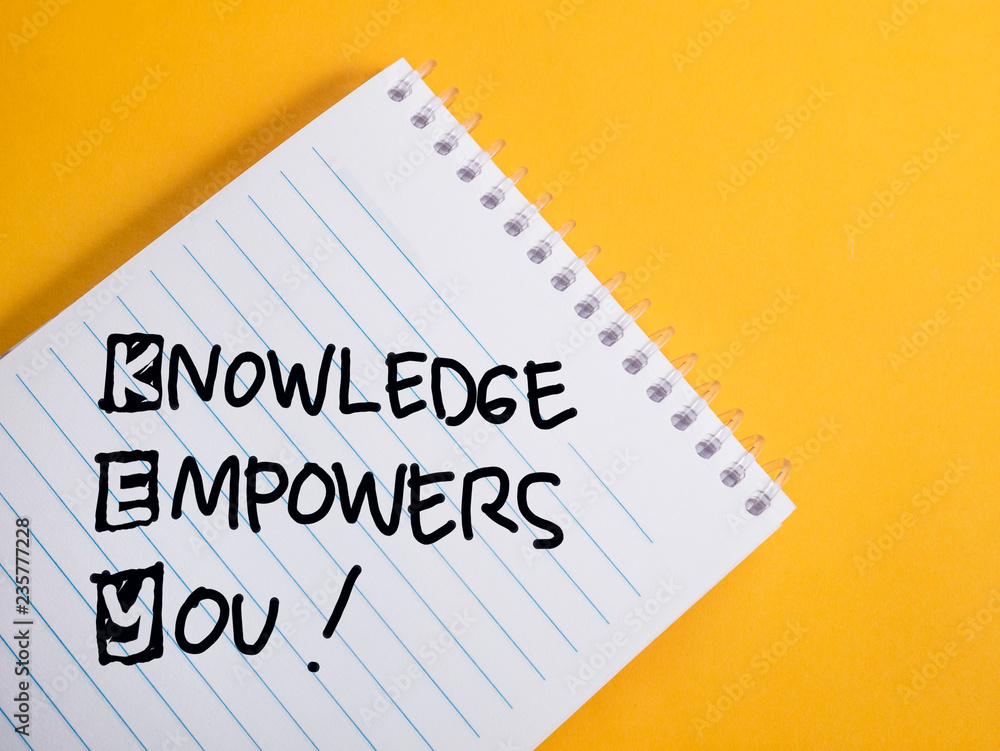 KNOWLEDGE
EMPOWERS
YOU!
Adobe Stock | #235777228